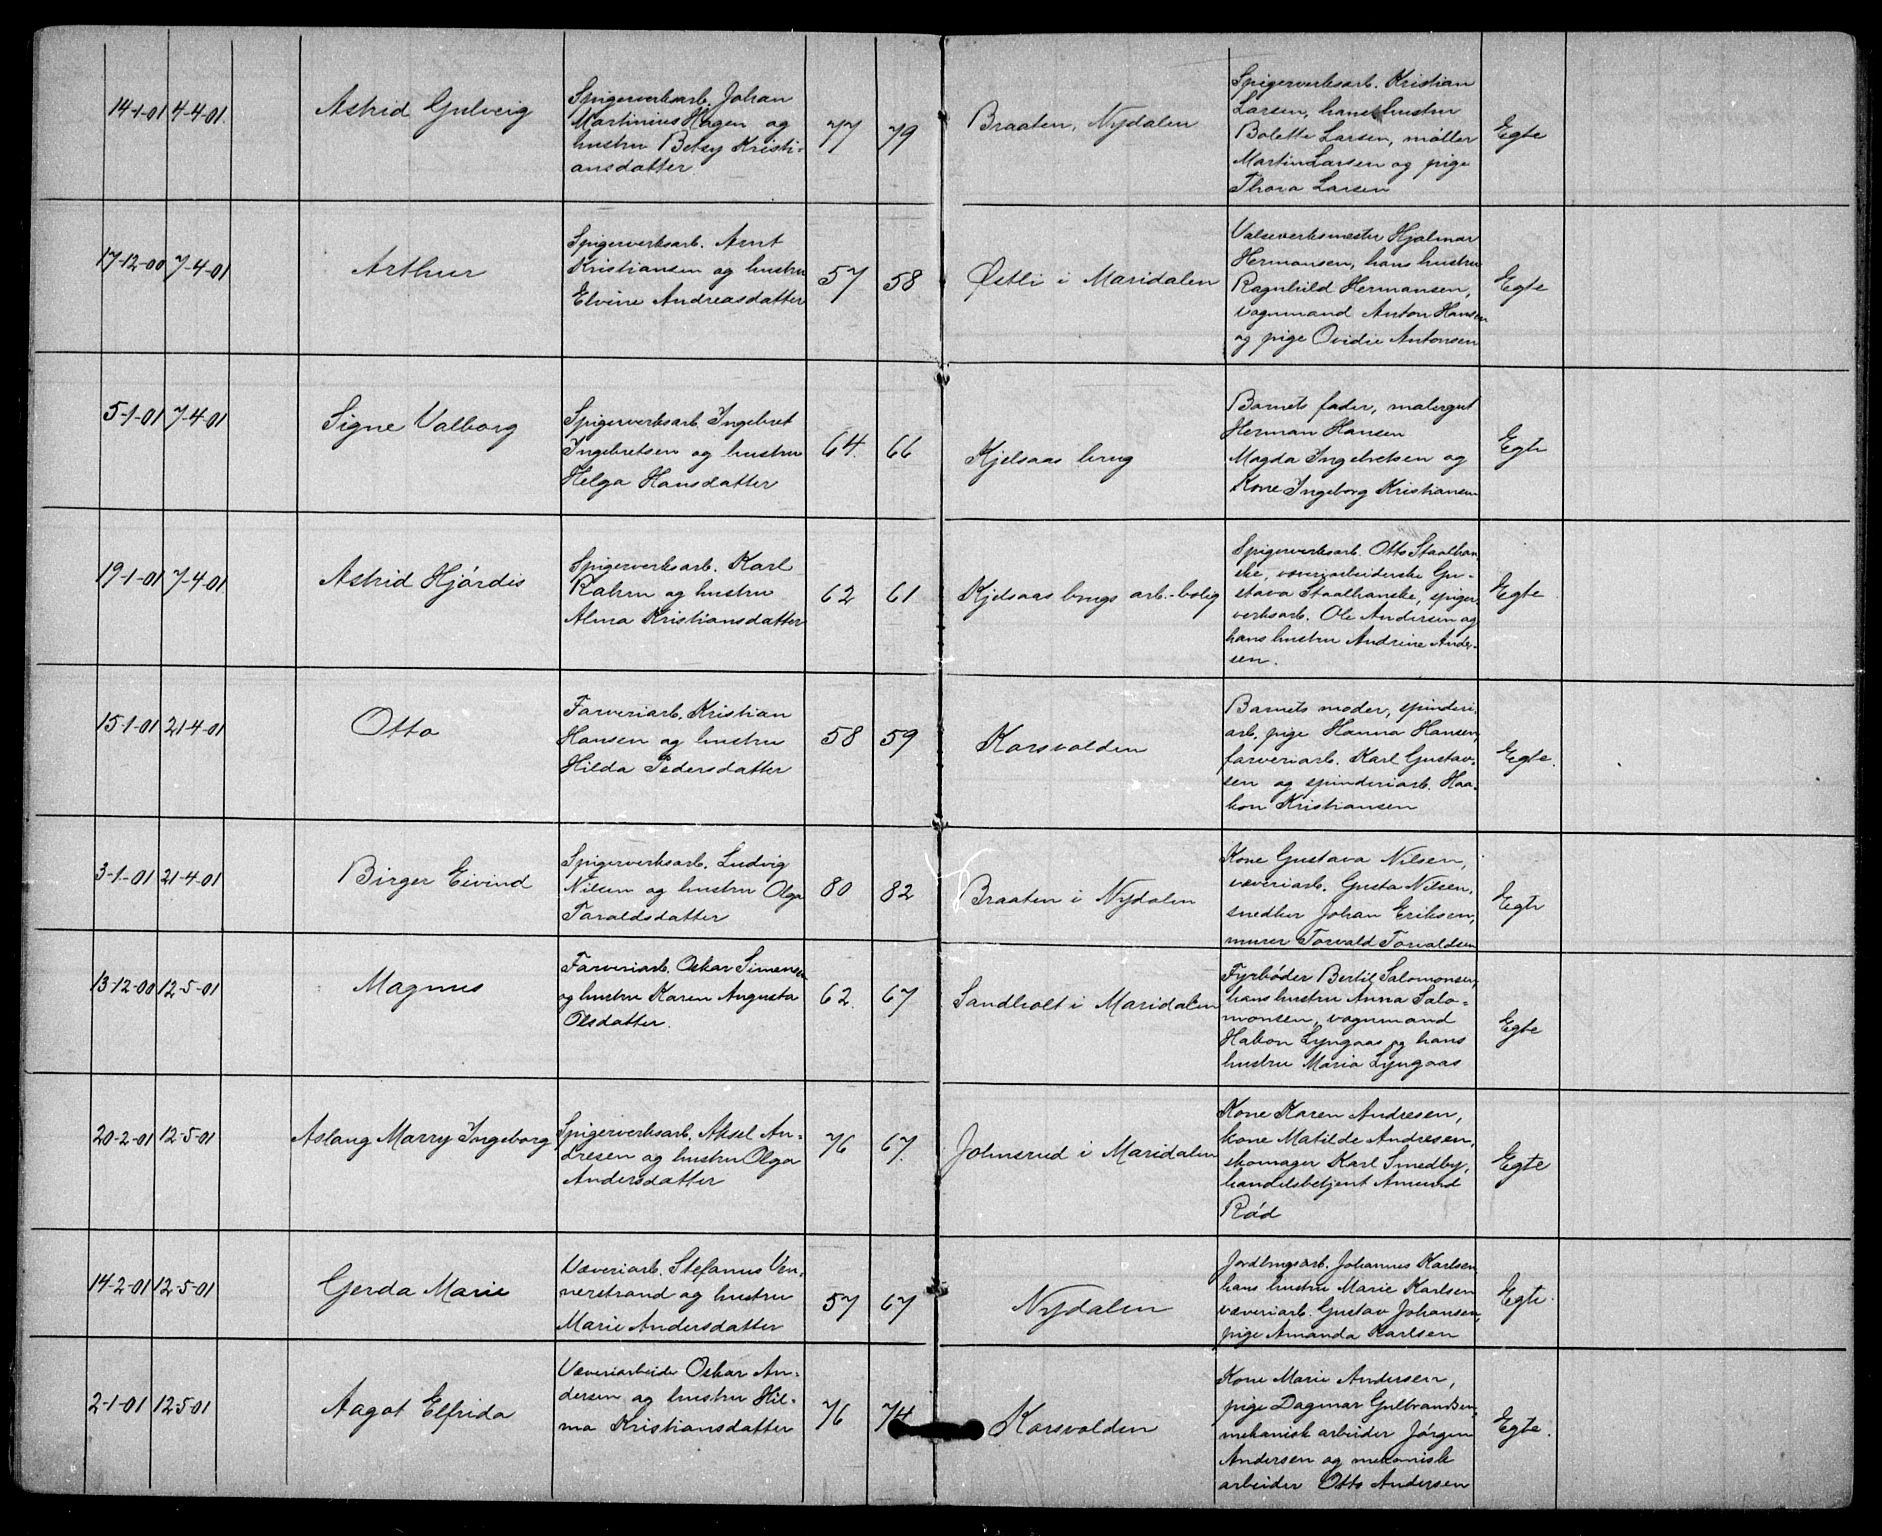 14-1-01 4-4-01. Astrid Gulveig
Spigerverksarb. Johan
Martinius Hagen og
hustru Betsy Kristi-
ansdatter.
77 79 Braaten, Nydalen
Spigerverksarb. Kristian
Larsen, hans hustru
Bolette Larsen, møller
Martin Larsen og pige
Thora Larsen
Egte
17-12-00 7-4-01 Arthur
Spigerverksarb. Arnt
Kristiansen og hustru
Elvine Andreasdatter
57 58 Østli i Maridalen
Valseverksmester Hjalmar
Hermansen, hans hustru
Ragnhild Hermansen,
vognmand Anton Hansen
og pige Ovidie Antonsen
Egte
5-1-01 7-4-01 Signe Valborg
Spigerverksarb. Ingebret
Ingebretsen og hustru
Helga Hansdatter
64. 66 Kjelsaas brug
Barnets fader, malergut
Herman Hansen
Magda Ingebretsen og
Kone Ingeborg Kristiansen
Egte
19-1-01 7-4-01 Astrid Hjördis
Spigerverksarb. Karl
Rahm og hustru
Alma Kristiansdatter
62 61 Kjelsaas brugs arb.-bolig
Spigerverksarb. Otto Staalhan-
ske, væveriarbeiderske Gu-
stava Staalhanske, spiger-
verksarb. Ole Andersen og
hans hustru Andrine Ander-
sen.
Egte
15-1-01 21-4-01 Otto
Farveriarb. Kristian
Hansen og hustru
Hilda Pedersdatter
58 59 Korsvolden
Barnets moder, spinderi-
arb. pige Hanna Hansen,
farveriarb. Karl Gustav-
sen og spinderiarb. Haa-
kon Kristiansen
Egte.
3-1-01 21-4-01 Birger Eivind
Spigerverksarb. Ludvig
Nilsen og hustru Olga
Taraldsdatter
80 82 Braaten i Nydalen
Kone Gustava Nilsen,
væveriarb. Gusta Nilsen,
snedker Johan Eriksen,
murer Torvald Torvaldsen
Egte
13-12-00 12-5-01 Magnus
Farveriarb. Oskar Simensen
og hustru Karen Augusta
Olsdatter.
62. 67 Sandholt i Maridalen
Fyrbøder Bertil Salomonsen,
hans hustru Anna Salo-
monsen, vognmand
Hakon Lyngaas og hans
hustru Maria Lyngaas
Egte
20-2-01 12-5-01 Aslaug Marry Ingeborg
Spigerverksarb. Aksel An-
dresen og hustru Olga
Andersdatter
76 67. Johnsrud i Maridalen
Kone Karen Andresen,
kone Matilde Andresen,
skomager Karl Smedby,
handelsbetjent Amund
Rød
Egte
14-2-01 12-5-01 Gerda Marie
Væveriarb. Stefanus Ven-
nerstrand og hustru
Marie Andersdatter
57 67 Nydalen
Jordbrugsarb. Johannes Karlsen
hans hustru Marie Karlsen
væveriarb. Gustav Johansen,
pige Amanda Karlsen
Egte.
2-1-01 12-5-01 Aagot Elfrida
Væveriarbeide Oskar An-
dersen og hustru Hil-
ma Kristiansdatter
76 74 Korsvolden
Kone Marie Andersen,
pige Dagmar Gulbrandsen,
mekanisk arbeider Jørgen
Andersen og mekanisk
arbeider Otto Andersen
Egte.